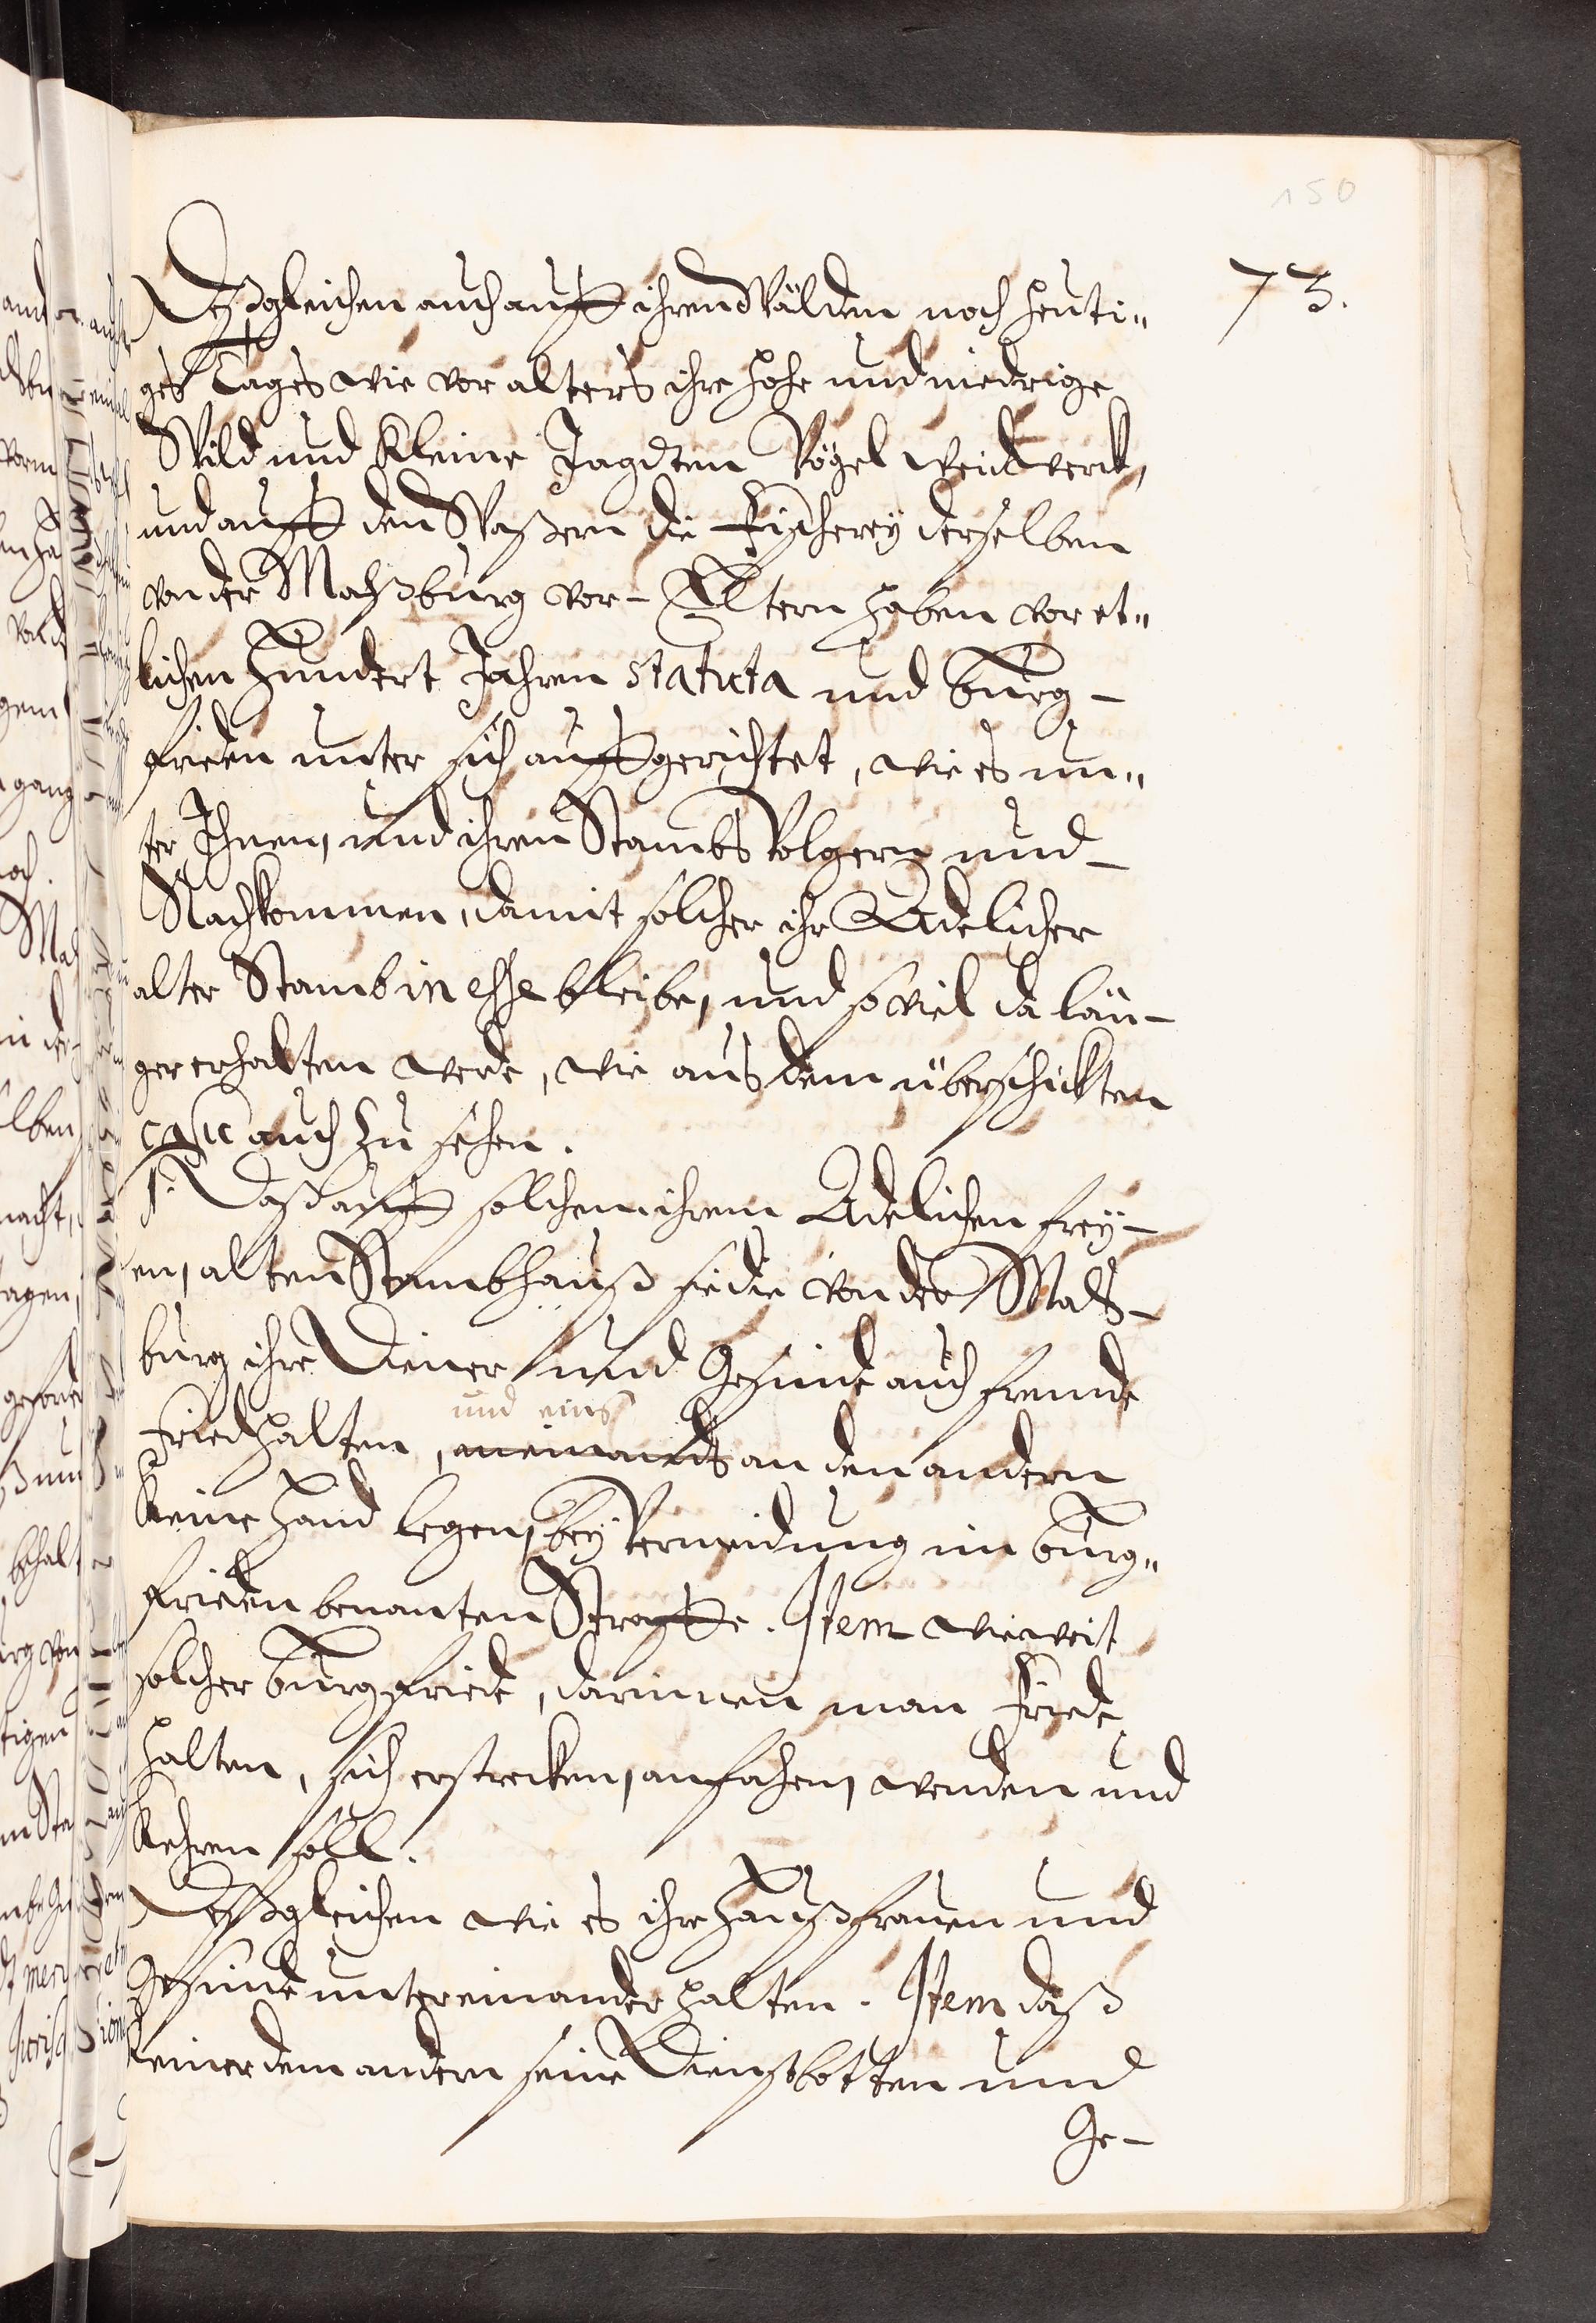 150
73.
Deßgleichen auch auff ihren Wälden noch heuti„
ges Tages wie vor alters ihre hohe und niedrige
Wild und Kleine Jagdten Vögel weidwerck,
und auff den Waßern die Fischerey derselben
von der Malßburg vor- Eltern haben vor et„
lichen hundert Jahren statuta und burg-
frieden unter sich auffgerichtet, wie es un„
ter Ihnen, und ihren Stambs Volgern und
Nachkommen, damit solcher ihr Adelicher
alter Stamb in esse bleibe, und so viel da län-
ger erhalten werde, wie aus dem überschickten
casu auch zu sehen.
1. Daß auff solchem ihrem Adelichen frey-
en, alten Stambhauß sie die von der Malß-
burg ihre Diener und Gesinde auch frembde
und eins
Fried halten, an den andern
keine hand legen, bey Vermeidung im burg„
frieden benanten Straffe. Item wie weit
solcher burgfriede, darinnen man Friede
halten, sich erstrecken, anfahen, wenden und
kehren soll.
Deßgleichen wie es ihre haußfrauen und
Gesinde untereinander halten. Item daß
keiner dem andern seine Dienstbotten und
Ge-